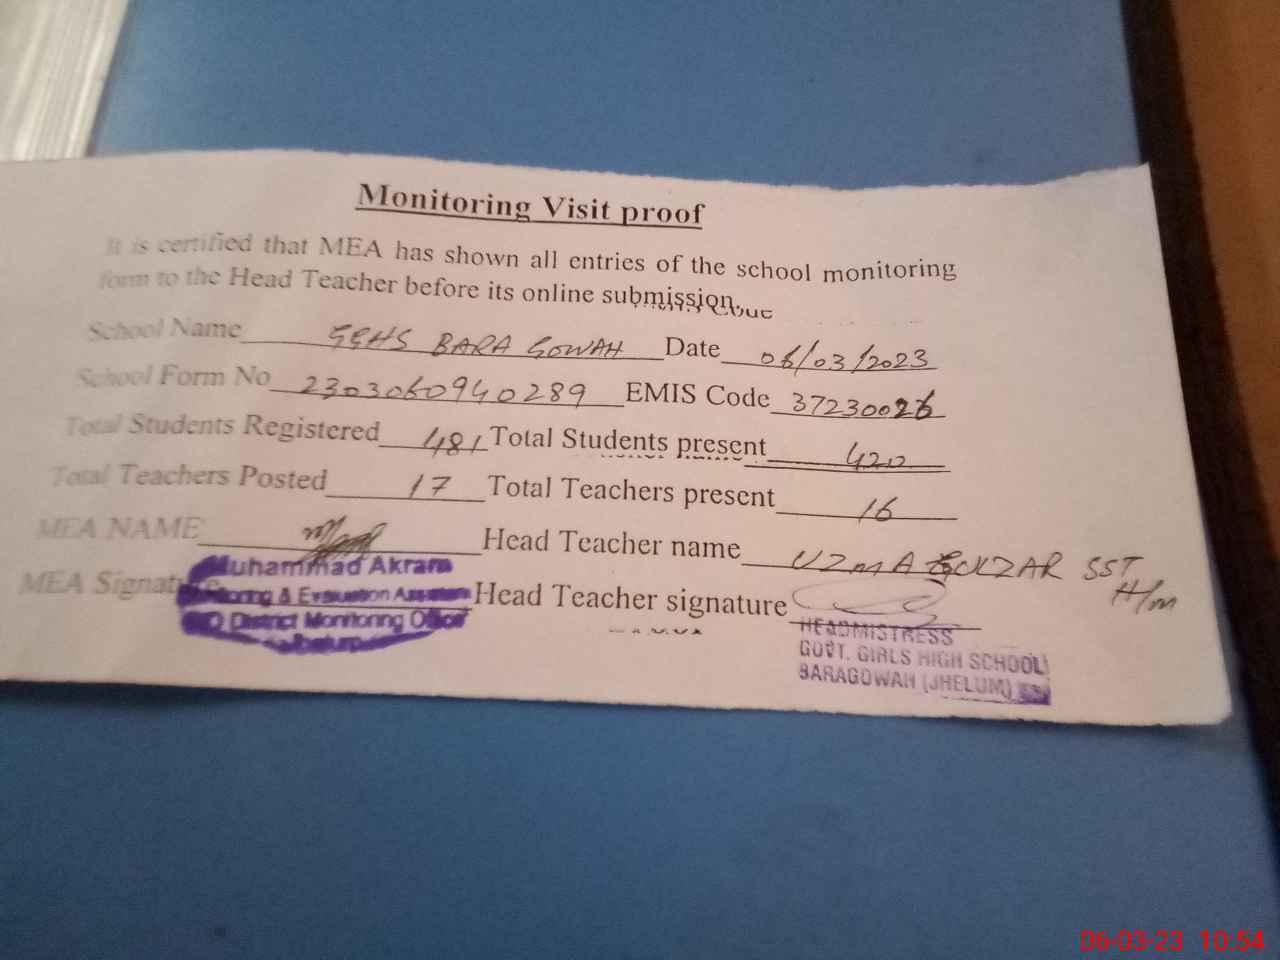 Monitoring Visit proof
It is certified that MEA has shown all entries of the school monitoring
form to the Head Teacher before its online submission.
School Name GGHS BARA GOWAH Date 06/03/2023
School Form No 2303060940289 EMIS Code 37230026
Total Students Registered 481 Total Students present 420
Total Teachers Posted 17 Total Teachers present 16
MEA NAME Head Teacher name UZMA GULZAR SST
H/m
MEA Signature Head Teacher signature
Muhammad Akram
Monitoring & Evaluation Assistant
District Monitoring Office
Jhelum
HEADMISTRESS
GOVT. GIRLS HIGH SCHOOL
BARAGOWAH (JHELUM)
06-03-23 10:54